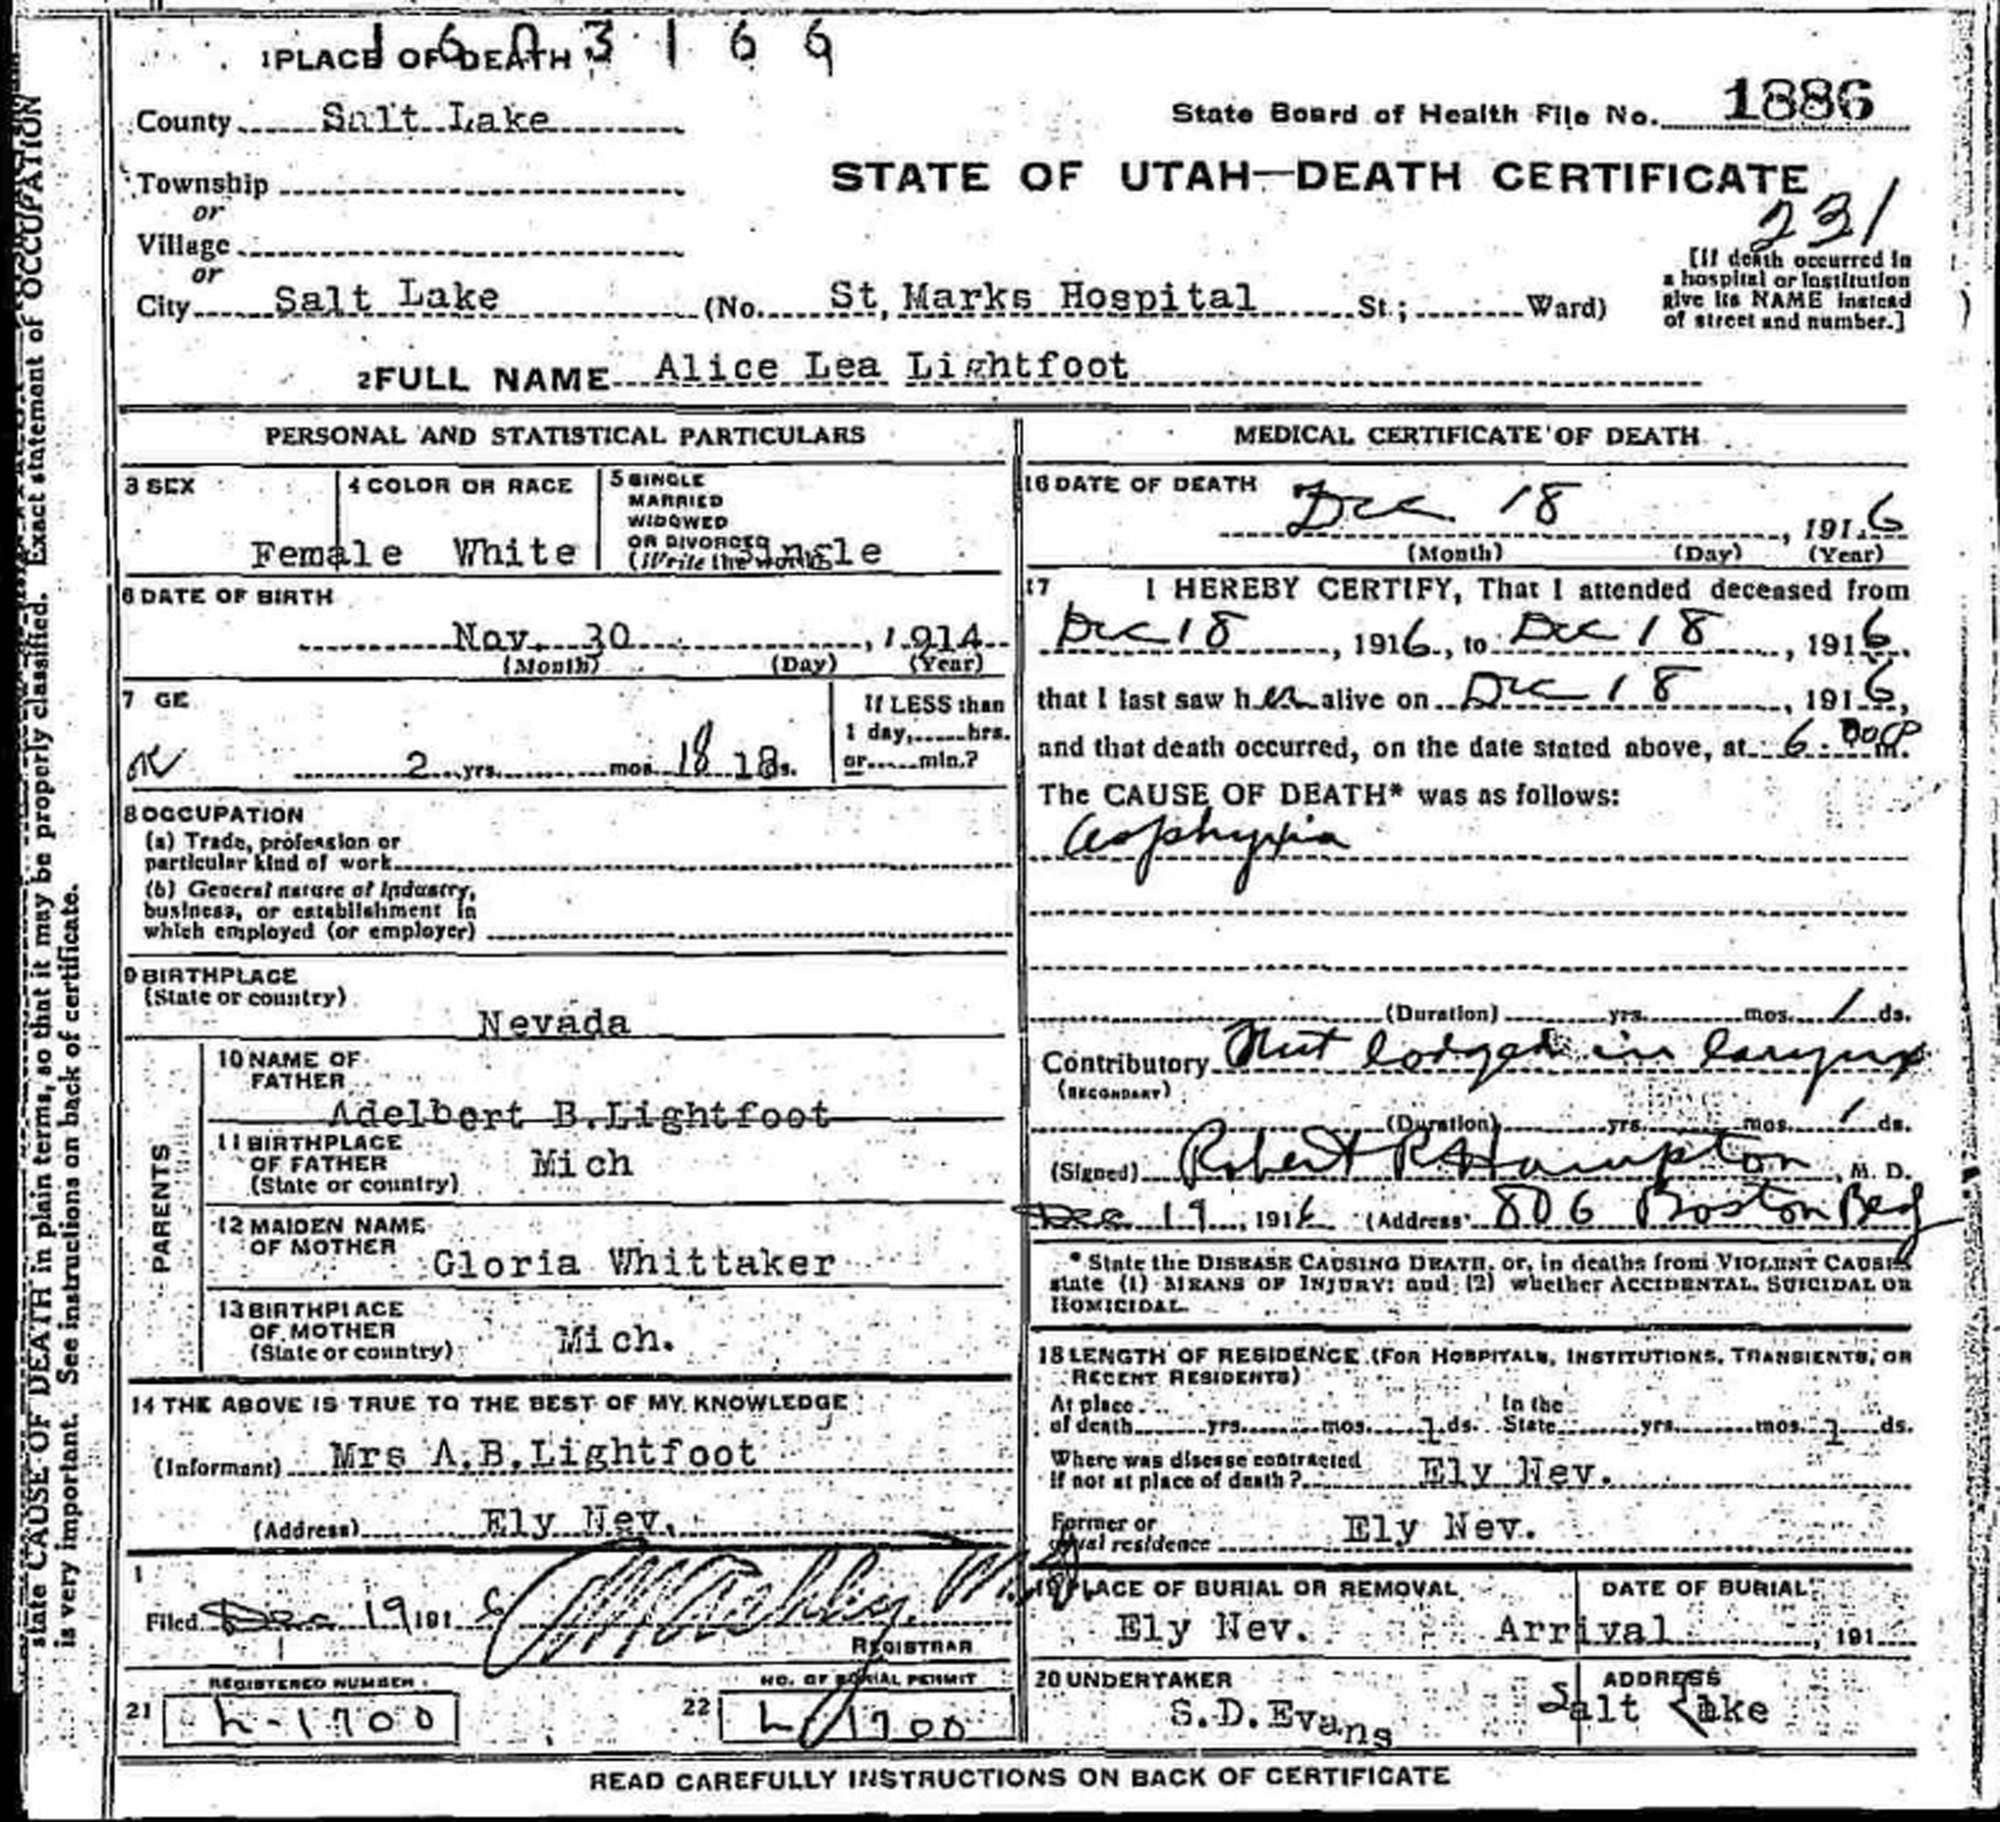 1 6 0 3 1 6 6
1 PLACE OF DEATH
County Salt Lake
State Board of Health File No. 1886
Township
or
Village
or
STATE OF UTAH—DEATH CERTIFICATE
231
[If death occurred in
a hospital or institution
give its NAME instead
of street and number.]
City Salt Lake (No. St, Marks Hospital St; Ward)
2 FULL NAME Alice Lea Lightfoot
PERSONAL AND STATISTICAL PARTICULARS
3 SEX
Female
4 COLOR OR RACE
White
5 SINGLE
MARRIED
WIDOWED
OR DIVORCED
(Write the word)
Single
6 DATE OF BIRTH
Nov. 30, 1914
(Month) (Day) (Year)
7 GE
OK
2 yrs. mos. 18 18 ds.
If LESS than
1 day, hrs.
or min.?
8 OCCUPATION
(a) Trade, profession or
particular kind of work
(b) General nature of Industry,
business, or establishment in
which employed (or employer)
9 BIRTHPLACE
(State or country)
Nevada
PARENTS
10 NAME OF
FATHER
Adelbert B.Lightfoot
11 BIRTHPLACE
OF FATHER
(State or country)
Mich
12 MAIDEN NAME
OF MOTHER
Gloria Whittaker
13 BIRTHPLACE
OF MOTHER
(State or country)
Mich.
14 THE ABOVE IS TRUE TO THE BEST OF MY KNOWLEDGE
(Informant) Mrs A.B.Lightfoot
(Address) Ely Nev.
1
Filed Dec 19 1916
REGISTRAR
REGISTERED NUMBER
21 h-1700
NO. OF BURIAL PERMIT
22 1700
MEDICAL CERTIFICATE OF DEATH
16 DATE OF DEATH
Dec 18, 1916
(Month) (Day) (Year)
17 I HEREBY CERTIFY, That I attended deceased from
Dec 18, 1916, to Dec 18, 1916,
that I last saw her alive on Dec 18, 1916,
and that death occurred, on the date stated above, at 6:00 P m.
The CAUSE OF DEATH* was as follows:
Asphyxia
(Duration) yrs. mos. 1 ds.
Contributory Nut lodged in larynx
(SECONDARY)
(Duration) yrs. mos. 1 ds.
(Signed) Robert R Hampton, M. D.
Dec 19, 1916 (Address) 806 Boston Bldg
* State the DISEASE CAUSING DEATH, or, in deaths from VIOLENT CAUSES
state (1) MEANS OF INJURY; and (2) whether ACCIDENTAL, SUICIDAL OR
HOMICIDAL.
18 LENGTH OF RESIDENCE (FOR HOSPITALS, INSTITUTIONS, TRANSIENTS, OR
RECENT RESIDENTS)
At place
of death yrs. mos. 1 ds.
In the
State yrs. mos. 1 ds.
Where was disease contracted
If not at place of death? Ely Nev.
Former or
usual residence Ely Nev.
19 PLACE OF BURIAL OR REMOVAL
Ely Nev.
DATE OF BURIAL
Arrival, 191
20 UNDERTAKER
S.D.Evans
ADDRESS
Salt Lake
READ CAREFULLY INSTRUCTIONS ON BACK OF CERTIFICATE
state CAUSE OF DEATH in plain terms, so that it may be properly classified. Exact statement of OCCUPATION
is very important. See instructions on back of certificate.